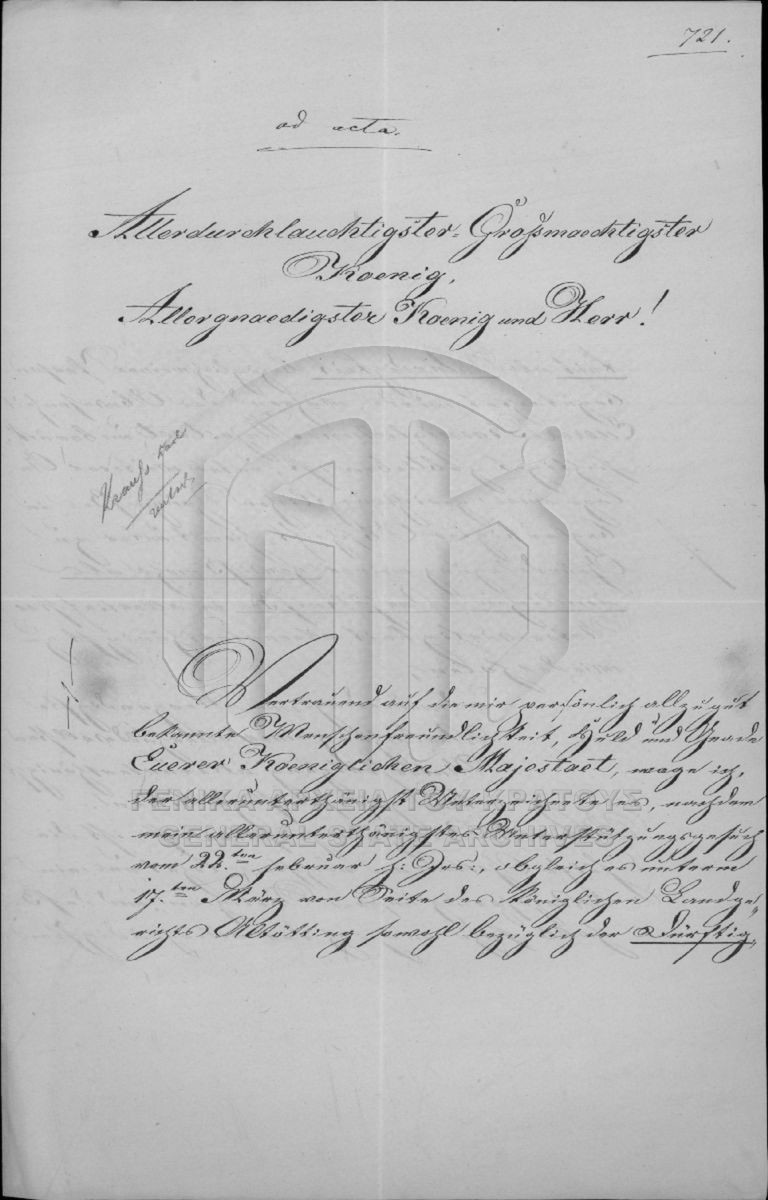 721.
ad acta.
Allerdurchlauchtigster, Großmaechtigster
Koenig,
Allergnaedigster Koenig und Herr!
Vertrauend auf die mir persönlich allzugut
bekannte Menschenfreundlichkeit, Huld und Gnade
Euerer Koeniglichen Majestaet, wage ich,
der allerunterthänigst Unterzeichnete es, nachdem
mein allerunterthänigstes Unterstützungsgesuch
vom 22ten Februar h: Jrs:, obgleich es unterm
17.ten März von Seite des königlichen Landge„
richts Altötting sowohl bezüglich der Dürftig„
ΓΕΝΙΚΑ ΑΡΧΕΙΑ ΤΟΥ ΚΡΑΤΟΥΣ
GENERAL STATE ARCHIVES